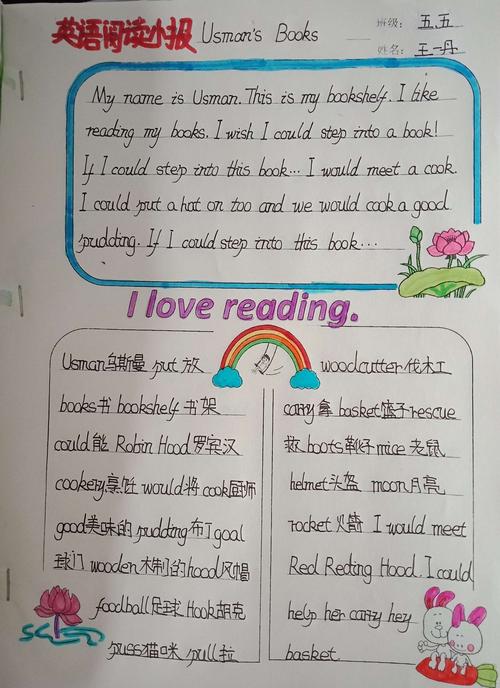 英语阅读小报 Usman's Books
班级: 五.五
姓名: 王一丹
My name is Usman. This is my bookshelf. I like
reading my books. I wish I could step into a book!
If I could step into this book... I would meet a cook.
I could put a hat on too and we would cook a good
pudding. If I could step into this book...
I love reading.
Usman乌斯曼 put 放
books书 bookshelf 书架
could能 Robin Hood罗宾汉
cookery烹饪 would将 cook厨师
good美味的 pudding布丁goal
球门 wooden木制的hood风帽
foodball足球 Hook胡克
puss猫咪 pull拉
woodcutter伐木工
carry拿 basket篮子rescue
救 boots靴子 mice 老鼠
helmet头盔 moon月亮
rocket火箭 I would meet
Red Reding Hood. I could
help her carry hey
basket.